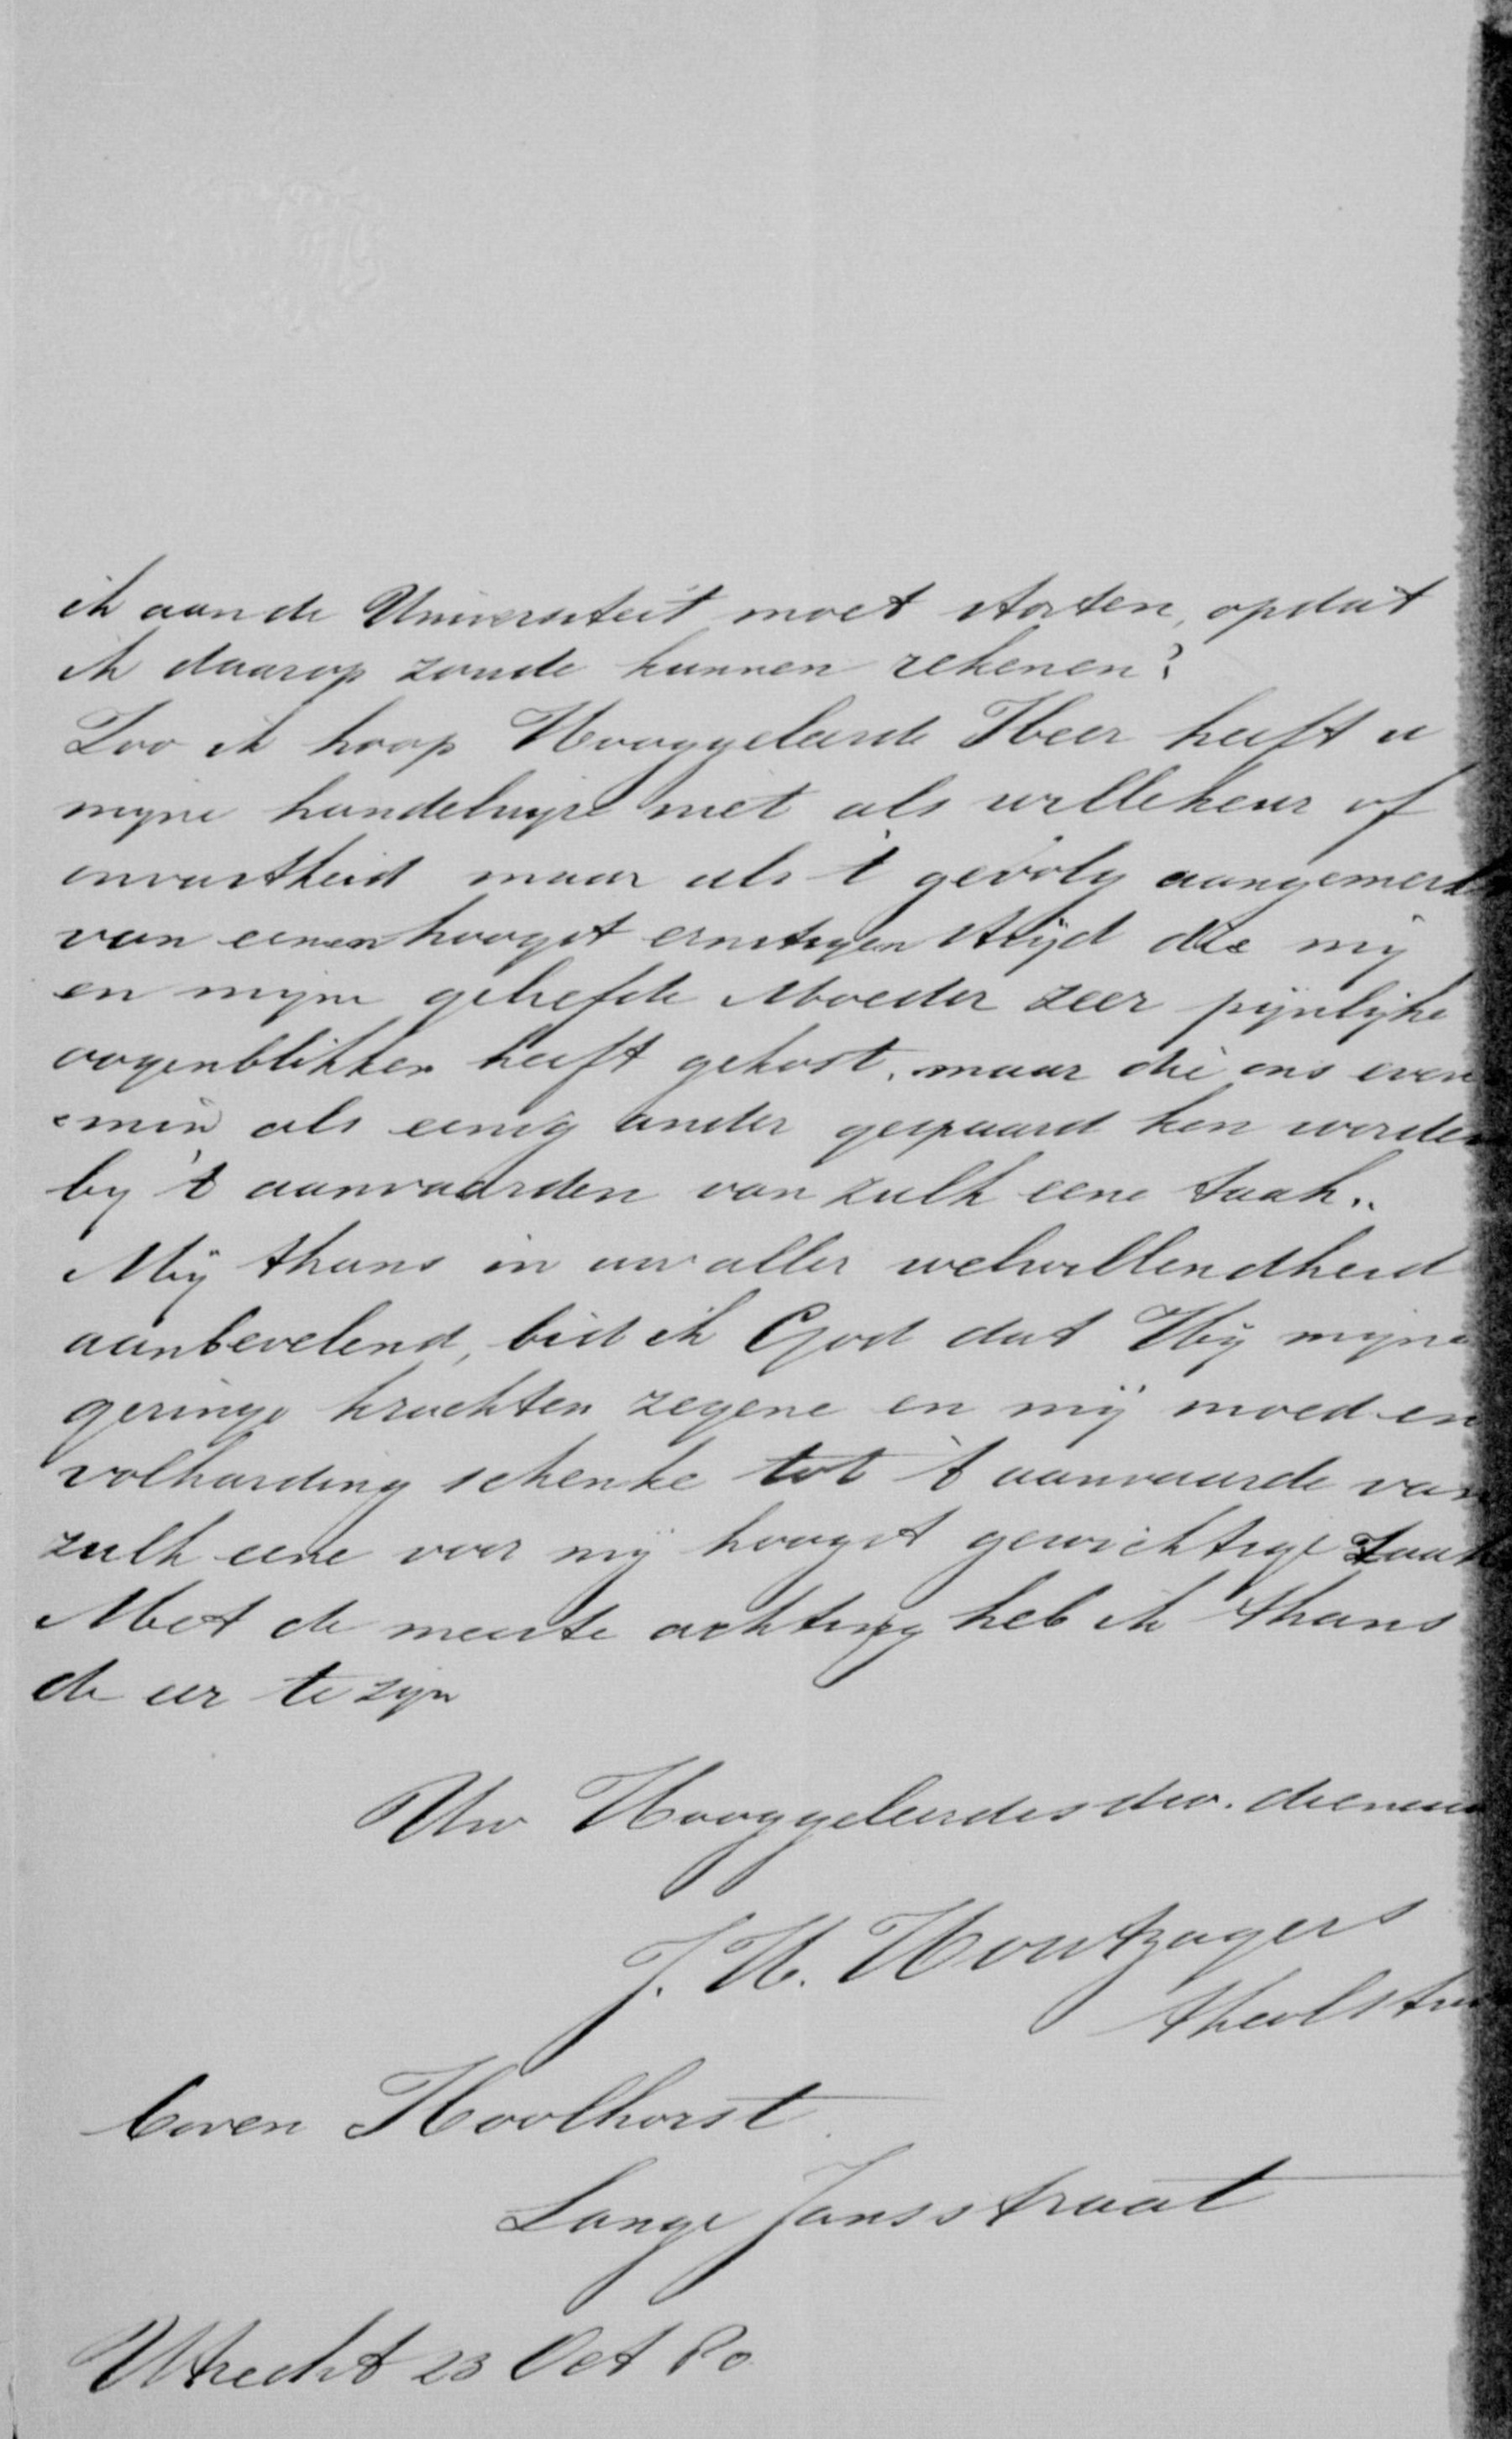 ik aan de Universiteit moet storten, opdat
ik daarop zoude kunnen rekenen?
Zoo ik hoop Hooggeleerde Heer heeft u
mijne handelwijze niet als willekeur of
onvastheid maar als 't gevolg aangemerkt
van eenen hoogst ernstigen strijd die mij
en mijne geliefde Moeder zeer pijnlijke
oogenblikken heeft gekost, maar die ons even
min als eenig ander gespaard kon worden
by 't aanvaarden van zulk eene taak.
Mij thans in uw aller welwillendheid
aanbevelend, bid ik God dat Hij mijne
geringe krachten zegene en mij moed en
volharding schenke tot 't aanvaarde van
zulk eene voor mij hoogst gewichtige taak
Met de meeste achting heb ik thans
de eer te zijn
Uw Hooggeleerdes dw. dienaar
J. H. Houtzagers
Theol stu
boven Hoolhorst
Lange Jansstraat
Utrecht 23 Oct 80